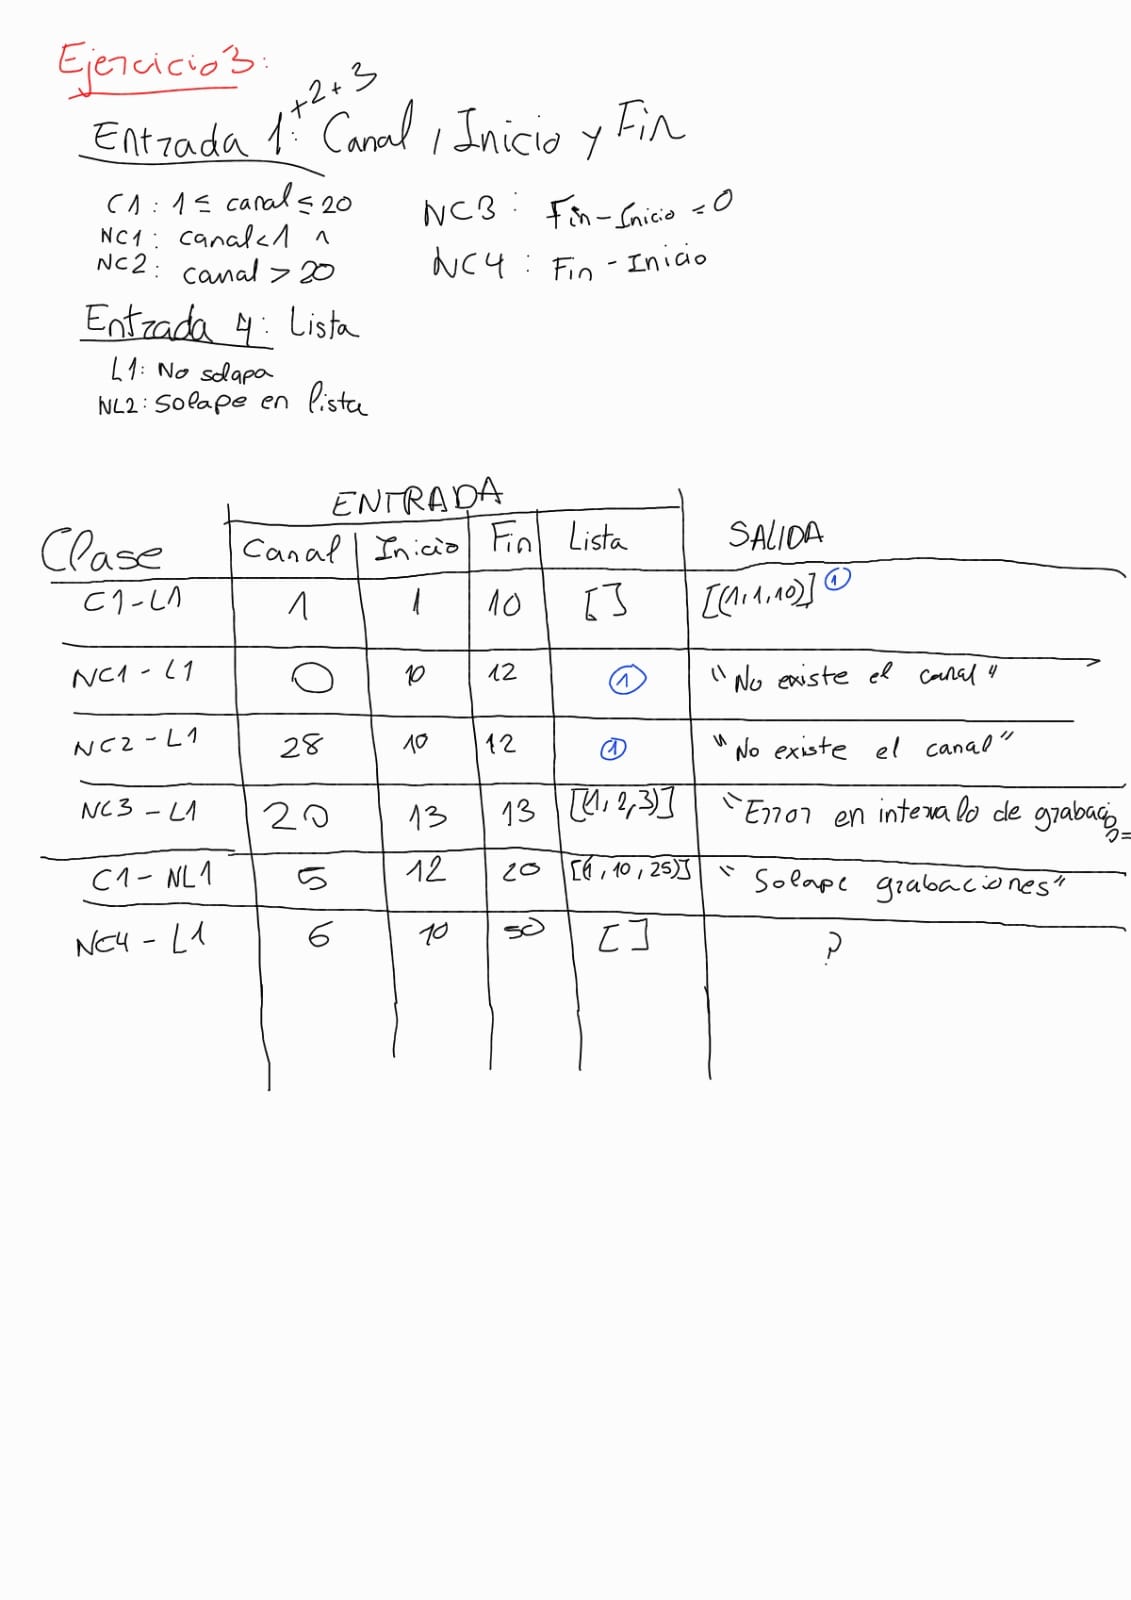 Ejercicio 3:
+2+3
Entrada 1: Canal, Inicio y Fin
C1: 1 ≤ canal ≤ 20
NC1: canal<1 ∧
NC2: canal > 20
NC3: Fin-Inicio = 0
NC4: Fin - Inicio
Entrada 4: Lista
L1: No solapa
NL2: Solape en lista
ENTRADA
Clase Canal Inicio Fin Lista SALIDA
C1-L1 1 1 10 [] [(1,1,10)] ①
NC1-L1 0 10 12 ① "No existe el canal"
NC2-L1 28 10 12 ① "No existe el canal"
NC3-L1 20 13 13 [(1,2,3)] "Error en intervalo de grabació
C1-NL1 5 12 20 10, 25)] "Solape grabaciones"
NC4-L1 6 10 50 [] ?